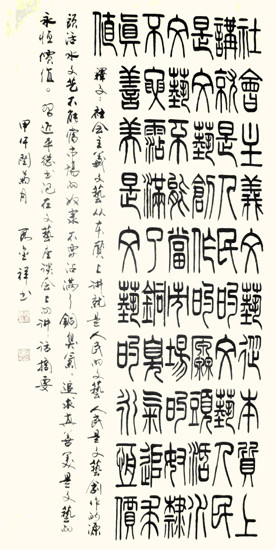 社會主義文藝從本質上
講就是人民的文藝人民
是文藝創作的源頭活水
文藝不能當市場的奴隸
不要沾滿了銅臭氣追求
真善美是文藝的永恒價
值
釋文：社会主義文藝从本質上講就是人民的文藝人民是文藝創作的源
頭活水文艺不能當市場的奴隸不要沾滿了銅臭氣追求真善美是文藝的
永恒價值 習近平總书记在文藝座談会上的讲话摘要
甲午閏菊月 金祥书